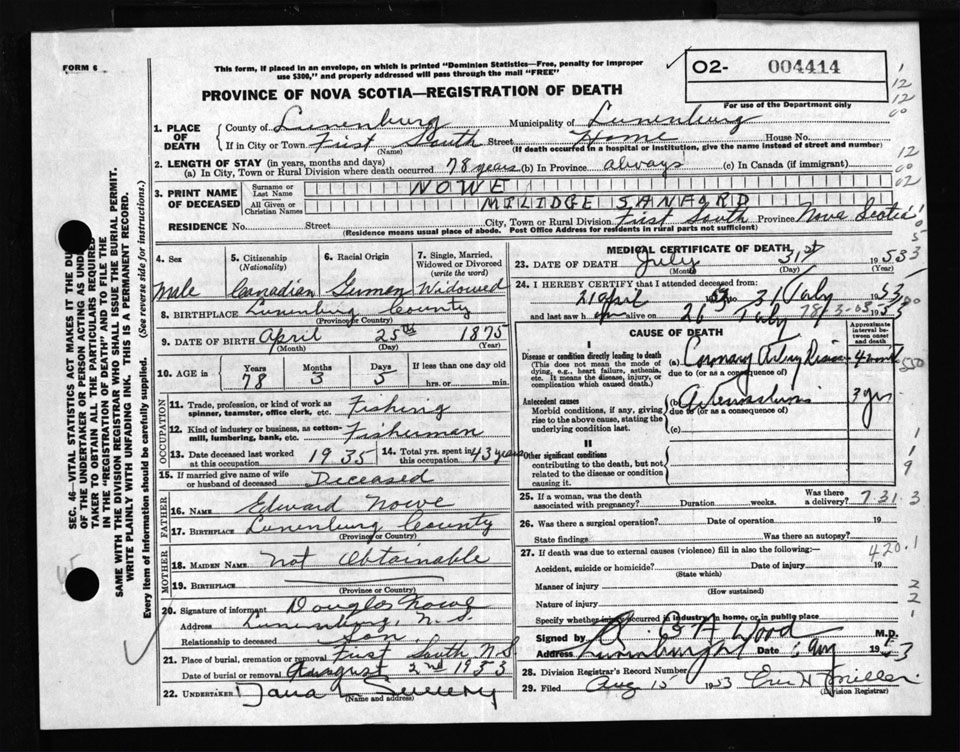 FORM 6
This form, if placed in an envelope, on which is printed "Dominion Statistics—Free, penalty for improper
use $300," and properly addressed will pass through the mail "FREE"
O2- 004414
For use of the Department only
PROVINCE OF NOVA SCOTIA—REGISTRATION OF DEATH
1. PLACE OF DEATH
County of Lunenburg Municipality of Lunenburg
If in City or Town First South Street Home House No.
(Name) (If death occurred in a hospital or institution, give the name instead of street and number)
2. LENGTH OF STAY (in years, months and days)
(a) In City, Town or Rural Division where death occurred 78 years (b) In Province always (c) In Canada (if immigrant)
3. PRINT NAME OF DECEASED
Surname or Last Name NOWE
All Given or Christian Names MILIDGE SANFORD
RESIDENCE No. Street City, Town or Rural Division First South Province Nova Scotia
(Residence means usual place of abode. Post Office Address for residents in rural parts not sufficient)
4. Sex Male
5. Citizenship (Nationality) Canadian
6. Racial Origin German
7. Single, Married, Widowed or Divorced (write the word) Widowed
8. BIRTHPLACE Lunenburg County
(Province or Country)
9. DATE OF BIRTH April 25th 1875
(Month) (Day) (Year)
10. AGE in Years 78 Months 3 Days 5 If less than one day old
hrs. or min.
OCCUPATION
11. Trade, profession, or kind of work as spinner, teamster, office clerk, etc. Fishing
12. Kind of industry or business, as cotton-mill, lumbering, bank, etc. Fisherman
13. Date deceased last worked at this occupation 1935
14. Total yrs. spent in this occupation 43 years
15. If married give name of wife or husband of deceased Deceased
FATHER
16. NAME Edward Nowe
17. BIRTHPLACE Lunenburg County
(Province or Country)
MOTHER
18. MAIDEN NAME Not Obtainable
19. BIRTHPLACE
(Province or Country)
20. Signature of informant Douglas Nowe
Address Lunenburg, N.S.
Relationship to deceased Son
21. Place of burial, cremation or removal First South, N.S.
Date of burial or removal August 2nd 1953
22. UNDERTAKER Dana L Sweeny
(Name and address)
MEDICAL CERTIFICATE OF DEATH
23. DATE OF DEATH July 31st 1953
(Month) (Day) (Year)
24. I HEREBY CERTIFY that I attended deceased from:
21 April 1953 31 July 1953
and last saw h im alive on 26 July 1953
CAUSE OF DEATH
Approximate interval between onset and death
I
Disease or condition directly leading to death
(This does not mean the mode of dying, e.g., heart failure, asthenia, etc. It means the disease, injury, or complication which caused death.)
(a) Coronary Artery Disease
due to (or as a consequence of)
Antecedent causes
Morbid conditions, if any, giving rise to the above cause, stating the underlying condition last.
(b) Arteriosclerosis 3 yrs
due to (or as a consequence of)
(c)
II
Other significant conditions
contributing to the death, but not related to the disease or condition causing it.
25. If a woman, was the death associated with pregnancy? Duration weeks. Was there a delivery?
7 31 3
26. Was there a surgical operation? Date of operation 19
State findings Was there an autopsy?
27. If death was due to external causes (violence) fill in also the following:—
420.1
Accident, suicide or homicide? Date of injury 19
(State which)
Manner of injury
(How sustained)
Nature of injury
Specify whether injury occurred in industry, in home, or in public place
Signed by Wood M.D.
Address Lunenburg Date Aug 1953
28. Division Registrar's Record Number
29. Filed Aug 15 1953 Miller
(Division Registrar)
SEC. 46—VITAL STATISTICS ACT MAKES IT THE DUTY
OF THE UNDERTAKER OR PERSON ACTING AS UNDERTAKER TO OBTAIN ALL THE PARTICULARS REQUIRED
IN THE "REGISTRATION OF DEATH" AND TO FILE THE
SAME WITH THE DIVISION REGISTRAR WHO SHALL ISSUE THE BURIAL PERMIT.
WRITE PLAINLY WITH UNFADING INK. THIS IS A PERMANENT RECORD.
Every item of Information should be carefully supplied. (See reverse side for instructions.)